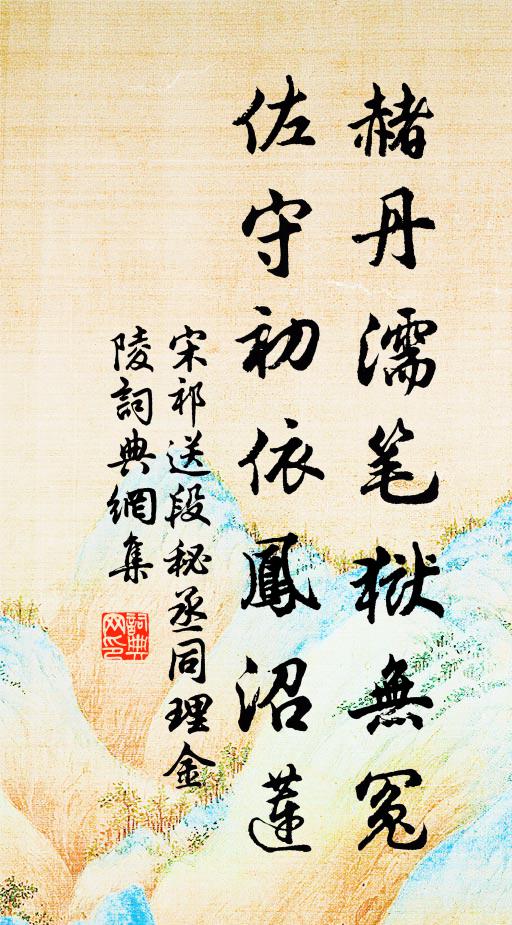 赭丹濡笔獄無冤
佐守初依鳳沼蓮
宋祁送段秘丞同理金
陵詞典網集
詞典
网印